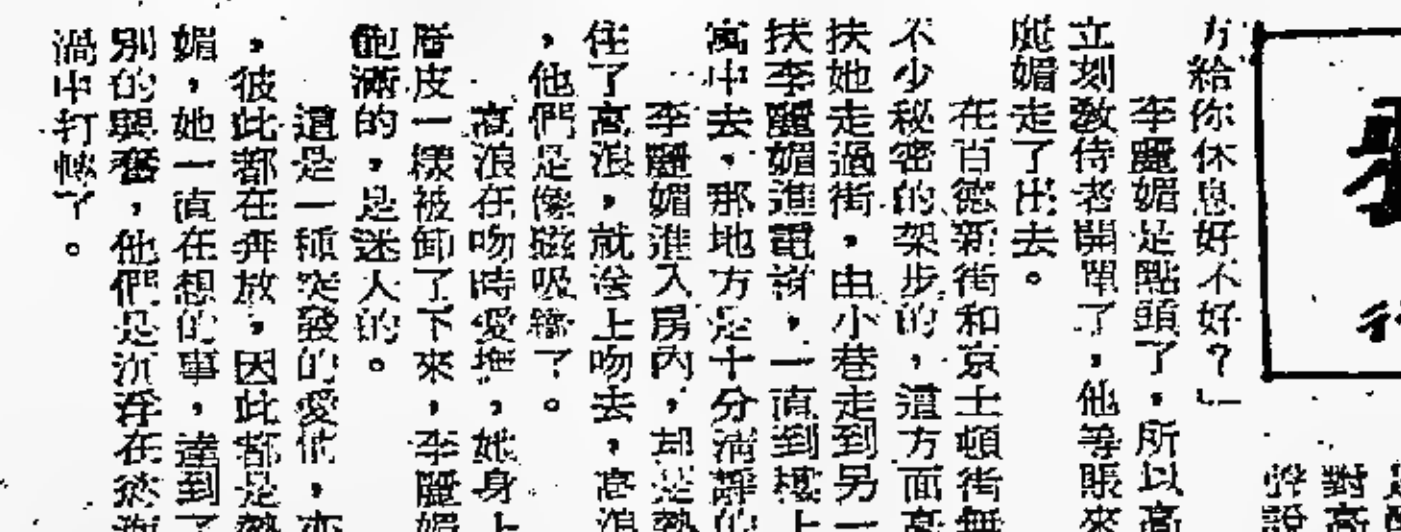 方給你休息好不好？」
李麗媚是點頭了，所以高
立刻教侍者開單了，他等賬來
麗媚走了出去。
在百德新街和京士頓街無
不少秘密的架步的，這方面高
扶她走過街，由小巷走到另一
扶李麗媚進電梯，一直到樓上
寓中去，那地方是十分清靜的
李麗媚進入房內，却是熱
住了高浪，就送上吻去，高浪
，他們是像磁吸鐵了。
高浪在吻時愛撫，她身上
層皮一樣被卸了下來，李麗媚
飽滿的，是迷人的。
這是一種突發的愛他，亦
，彼此都在奔放，因此都是熱
媚，她一直在想的事，達到了
別的興奮，他們是沉浮在慾海
渦中打轉了。
對高
聲說